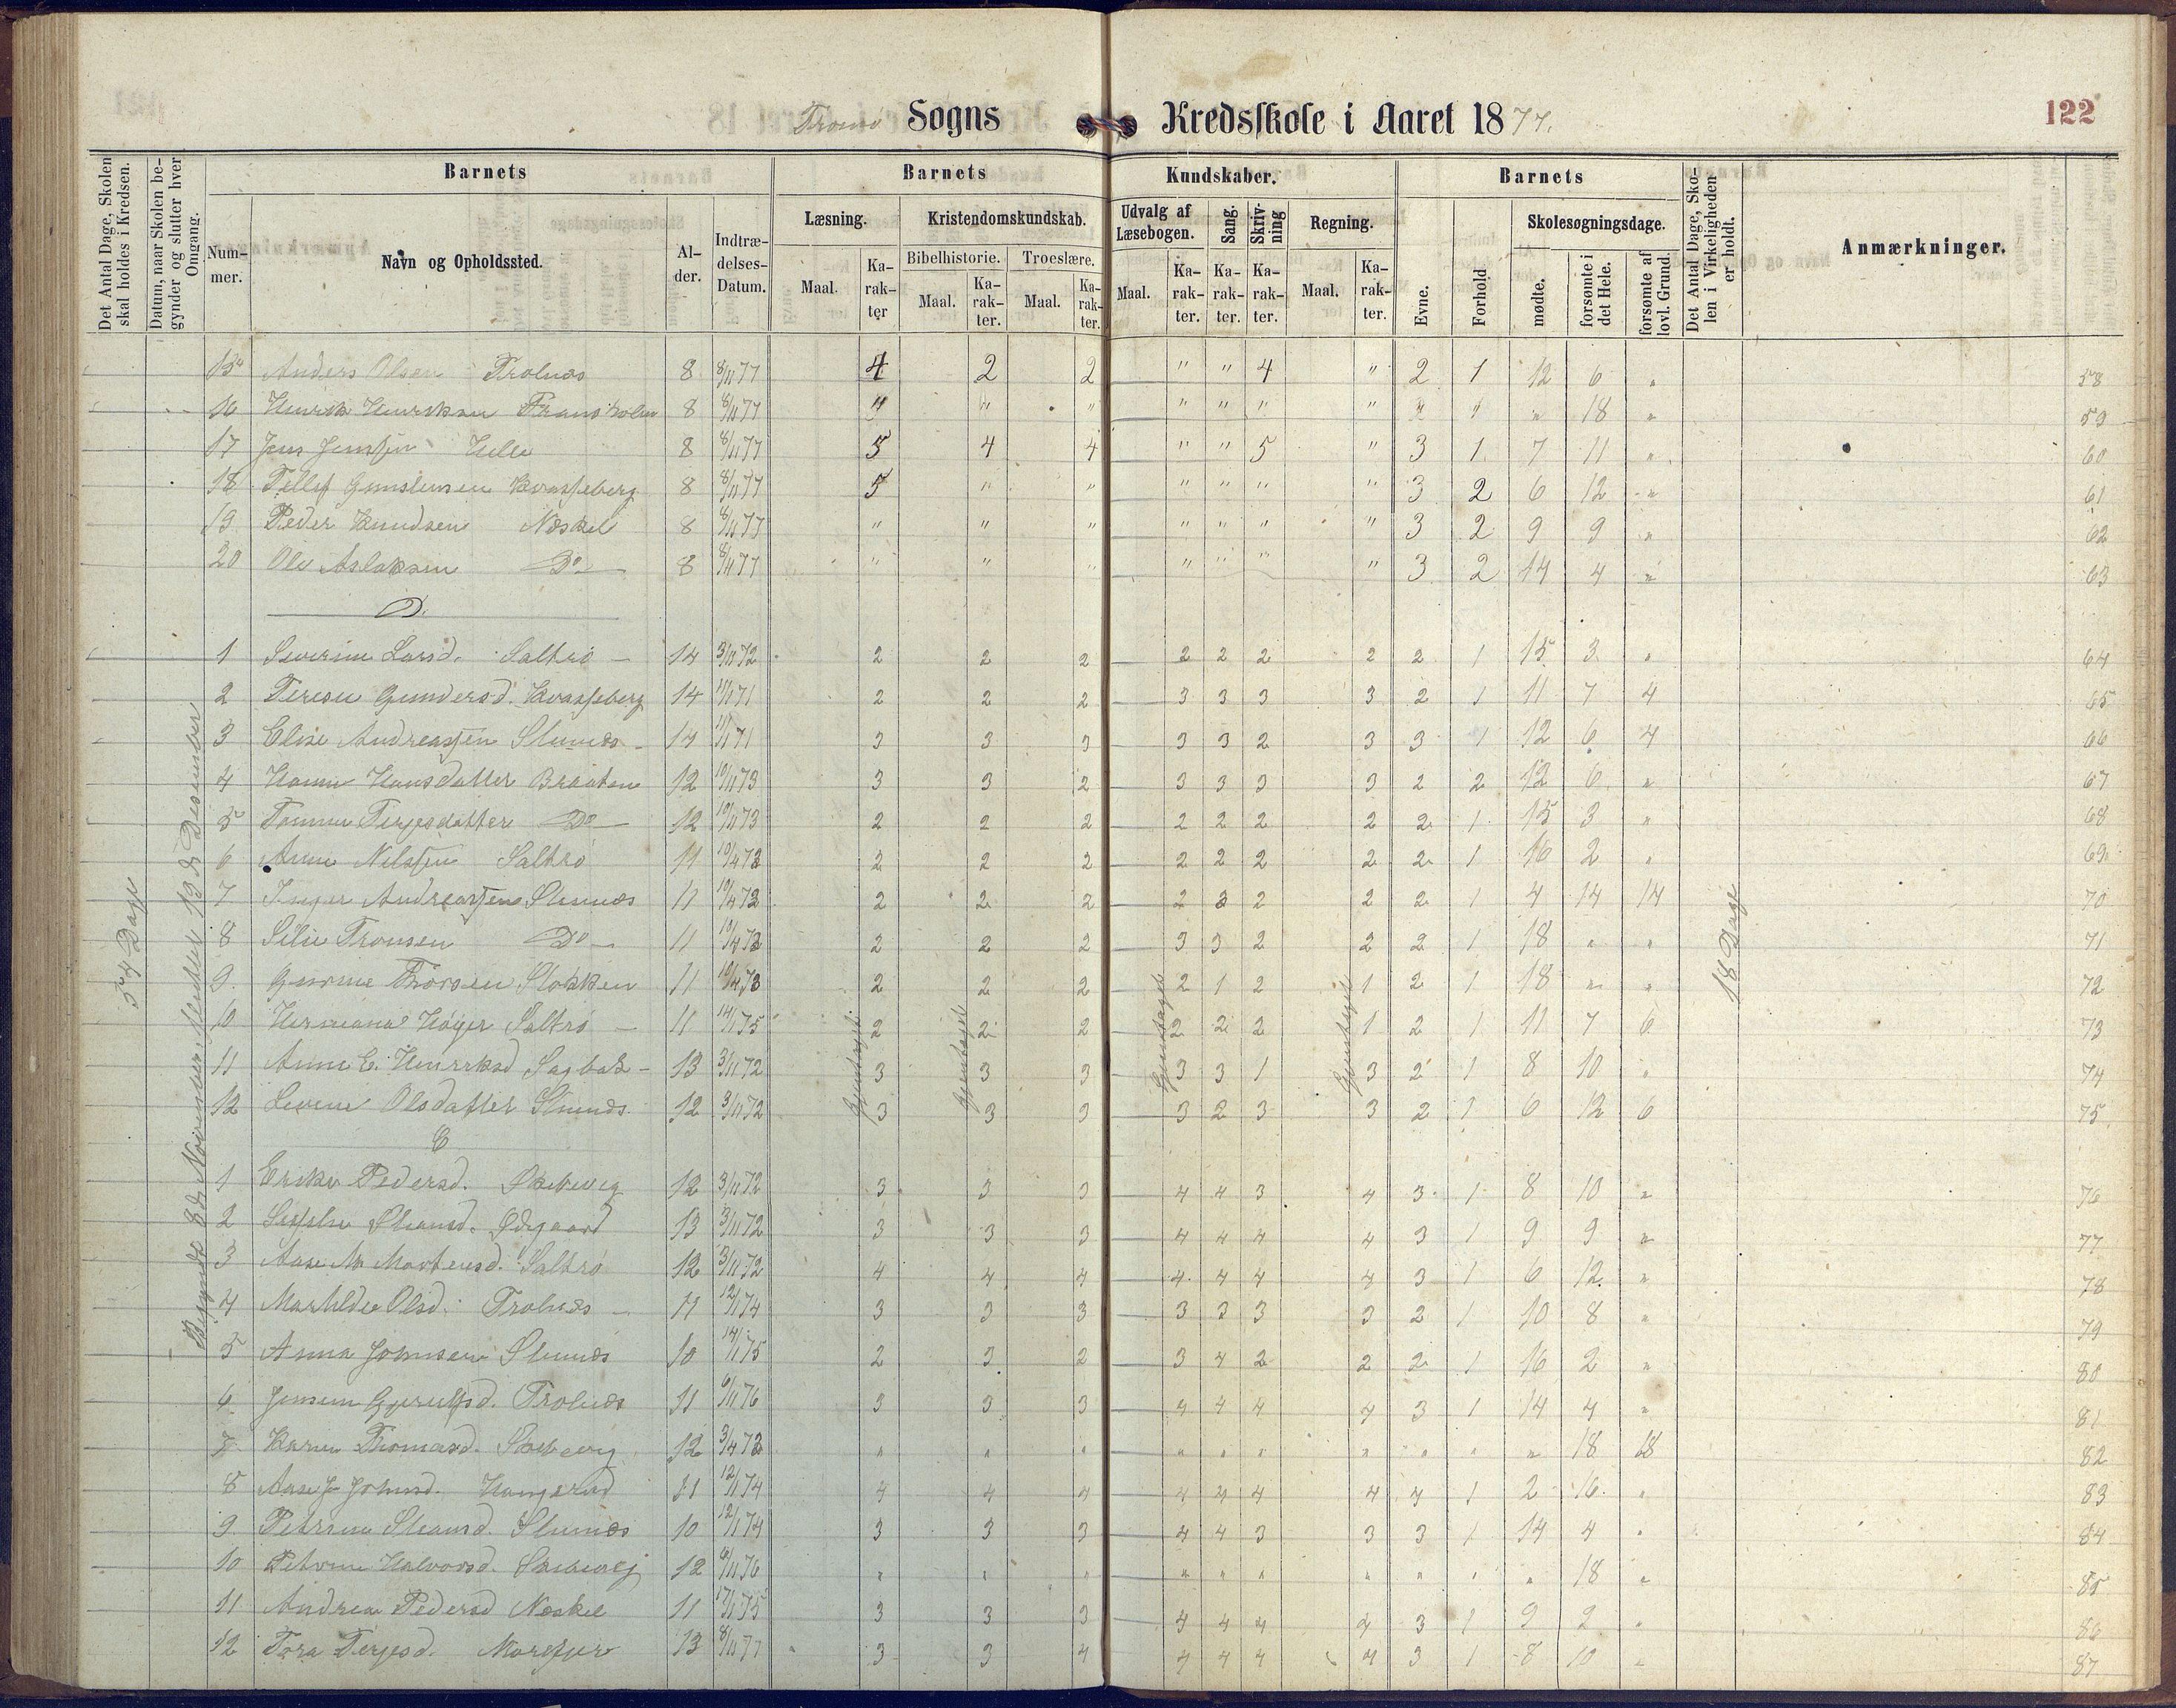 Tromø Sogns Kredsskole i Aaret 1877.
122
Det Antal Dage, Skolen skal holdes i Kredsen.
Datum, naar Skolen begynder og slutter hver Omgang.
Barnets
Barnets
Kundskaber.
Barnets
Det Antal Dage, Skolen i Virkeligheden er holdt.
Anmærkninger.
Nummer.
Navn og Opholdssted.
Alder.
Indtrædelses-Datum.
Læsning.
Kristendomskundskab.
Udvalg af Læsebogen.
Sang.
Skrivning
Regning.
Evne.
Forhold
Skolesøgningsdage.
Bibelhistorie.
Troeslære.
Maal.
Karakter
Maal.
Karakter.
Maal.
Karakter.
Maal.
Karakter.
Karakter.
Karakter.
Maal.
Karakter.
mødte.
forsømte i det Hele.
forsømte af lovl. Grund.
15 Anders Olsen Trolnæs 8 8/11 77 4 2 2 " " 4 " 2 1 12 6 " 58
16 Henrik Henriksen 8 8/11 77 " " " " " " " " " " 18 " 59
17 Jens Jensen Helle 8 8/11 77 5 4 4 " " 5 " 3 1 7 11 " 60
18 Tellef Kvasseberg 8 8/11 77 5 " " " " " " 3 2 6 12 " 61
19 Peder Knudsen Næskil 8 8/11 77 " " " " " " " 3 2 9 9 " 62
20 Ole Aslaksen Do 8 8/11 77 " " " " " " " 3 2 14 4 " 63
D.
1 Severine Larsd. Saltrø 14 3/11 72 2 2 2 2 2 2 2 2 1 15 3 " 64
2 Terese Gundersd. Kvasseberg 14 71 2 2 2 3 3 3 3 2 1 11 7 4 65
3 Elise Andreassen 14 71 3 3 3 3 3 2 3 3 1 12 6 4 66
4 Hanne Hansdatter Braaten 12 10/11 73 3 3 2 3 3 3 3 2 2 12 6 " 67
5 Tomine Terjesdatter Do 12 10/11 73 2 2 2 2 2 2 2 2 1 15 3 " 68
6 Anne Nilssen Saltrø 11 10/4 73 2 2 2 2 2 2 2 2 1 16 2 " 69
7 Inger Andreassen 11 10/4 73 2 2 2 2 3 2 2 2 1 4 14 14 70
8 Silie Tronsen Do 11 10/4 73 2 2 2 3 3 2 2 2 1 18 " " 71
9. Thorsen Stokken 11 10/4 73 2 2 2 2 1 2 1 2 1 18 " " 72
10 Hermana Høyer Saltrø 11 14/1 75 2 2 2 2 2 2 1 2 1 11 7 6 73
11 Anne E. Henriksd Sagbak 13 3/11 72 3 3 3 3 3 1 3 2 1 8 10 " 74
12 Olsdatter 12 3/11 72 3 3 3 3 2 3 3 2 1 6 12 6 75
E
1 Pedersd. 12 3/11 72 3 3 3 4 4 3 4 3 1 8 10 " 76
2 Ødegaard 13 3/11 72 3 3 3 4 4 4 4 3 1 9 9 " 77
3 Aase M Mortensd. Saltrø 12 3/11 72 4 4 4 4 4 4 4 3 1 6 12 " 78
4 Mathilde Olsd. Trolnæs 11 12/1 74 3 3 3 3 3 3 3 2 1 10 8 " 79
5 Anna Johnsen 10 14/1 75 2 3 2 3 4 2 2 2 1 16 2 " 80
6 Trolnæs 11 6/11 76 3 3 3 4 4 4 4 3 1 14 4 " 81
7 Karen Thomasd. 12 3/4 73 " " " " " " " " " " 18 18 82
8 Aase J Johnsd. 11 12/1 74 4 4 4 4 4 4 4 4 1 2 16 " 83
9. 10 12/1 74 3 3 3 4 4 3 3 3 1 14 4 " 84
10 Halvorsd. 12 6/11 76 " " " " " " " " " " 18 " 85
11 Andrea Pedersd Næskil 11 75 3 3 3 4 4 4 4 3 1 9 2 " 86
12 Tora Terjesd. 13 8/11 77 3 3 4 4 4 4 4 3 1 8 10 " 87
54 Dage
Begyndt 8de November, sluttet 13de Desember
Gjentaget
Gjentaget
Gjentaget
Gjentaget
18 Dage